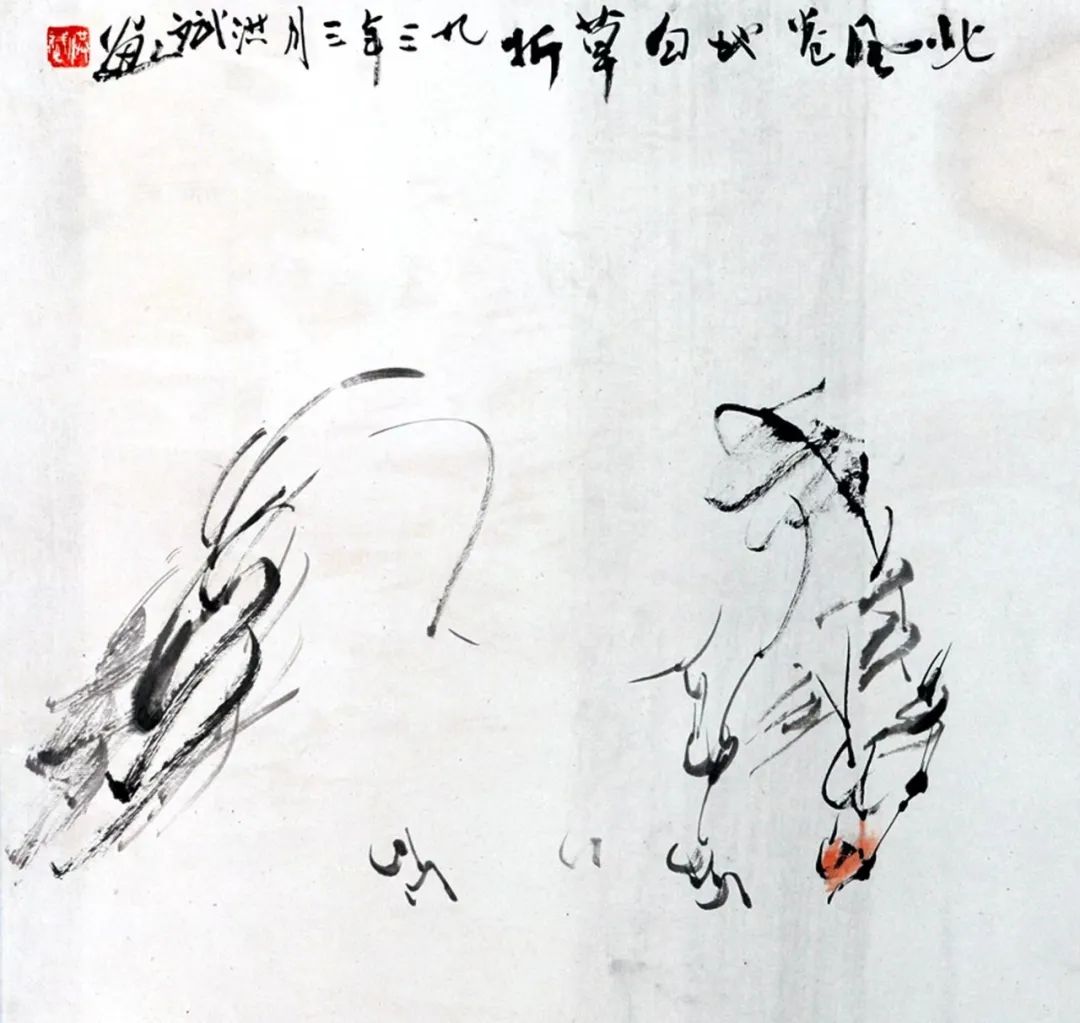 北风卷地白草折 九三年三月洪斌